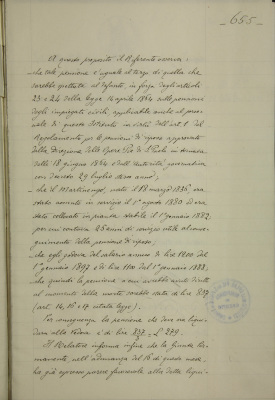 665
A questo proposito il Referente osserva:
- che tale pensione è uguale al terzo di quella che
sarebbe spettata al defunto in forza degli articoli
23 e 24 della legge 14 aprile 1864 sulle pensioni
degli impiegati civili, applicabile anche al perso-
nale di questo Istituto in virtù dell'art. 1 del
Regolamento per le pensioni di riposo approvato
dalla Direzione delle Opere Pie di S. Paolo in
delli 18 giugno 1884 e dall'autorità governativa
con decreto 29 luglio stesso anno;
- che il Martinengo, nato il 18 marzo 1836, era
stato assunto in servizio il 1° agosto 1880 ed era
stato collocato in pianta stabile il 1° gennaio 1882
per cui contava 25 anni di servizio utile al conse-
guimento della pensione di riposo;
- che egli godeva del salario annuo di lire 1200 dal
1° gennaio 1897 e di lire 1100 dal 1° gennaio 1888;
- che quindi la pensione a cui avrebbe avuto diritto
al momento della morte sarebbe stata di lire 837
(art. 14, 16 e 17 citata legge).
Per conseguenza la pensione che deve ora liqui-
darsi alla Vedova è di lire 837 = L. 279.
Il Relatore informa infine che la Giunta
nell'adunanza del 16 di questo mese,
ha già espresso parere favorevole alla detta liqui-